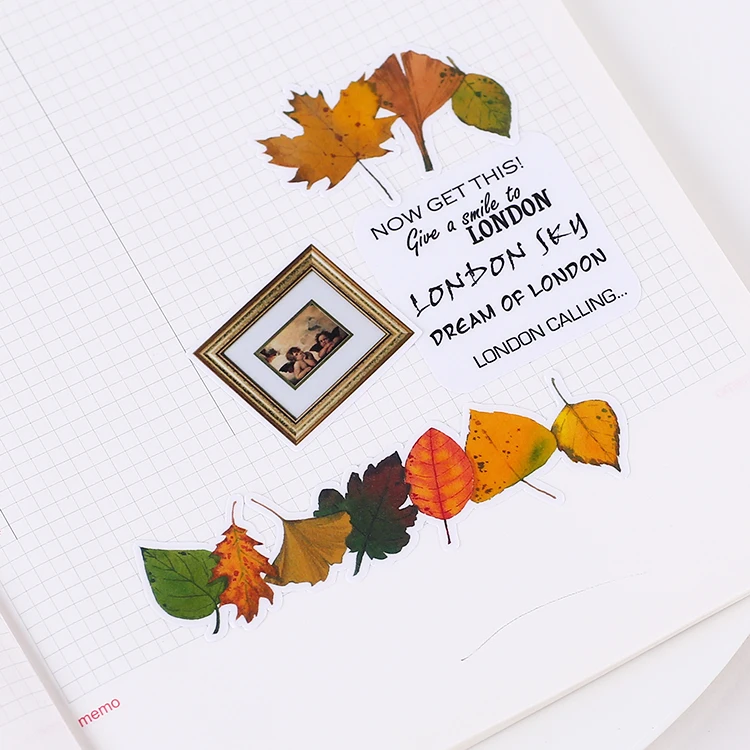 NOW GET THIS!
Give a smile to
LONDON
LONDON SKY
DREAM OF LONDON
LONDON CALLING...
memo